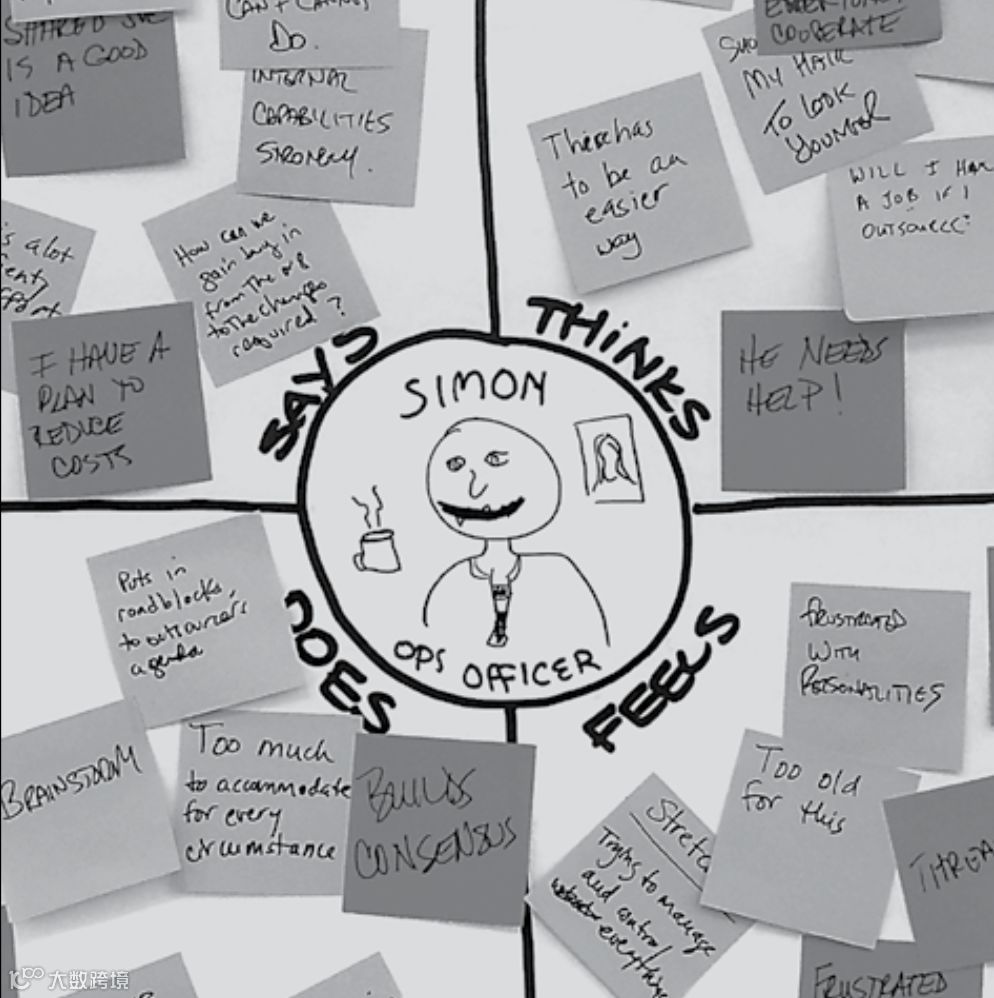 IS A GOOD
IDEA
DO.
INTERNAL
CAPABILITIES
STRONGLY.
How can we
gain buy in
from the org
to the changes
required?
I HAVE A
PLAN TO
REDUCE
COSTS
SAYS
COOPERATE
MY HAIR
TO LOOK
YOUNGER
There has
to be an
easier
way
WILL I HAVE
A JOB IF I
OUTSOURCE?
HE NEEDS
HELP!
THINKS
SIMON
OPS OFFICER
DOES
Puts in
roadblocks,
to outsourcers
agenda
BRAINSTORM
Too much
to accommodate
for every
circumstance
BUILDS
CONSENSUS
FEELS
FRUSTRATED
WITH
PERSONALITIES
Too old
for this
Trying to manage
and control
everything
FRUSTRATED
大数跨境